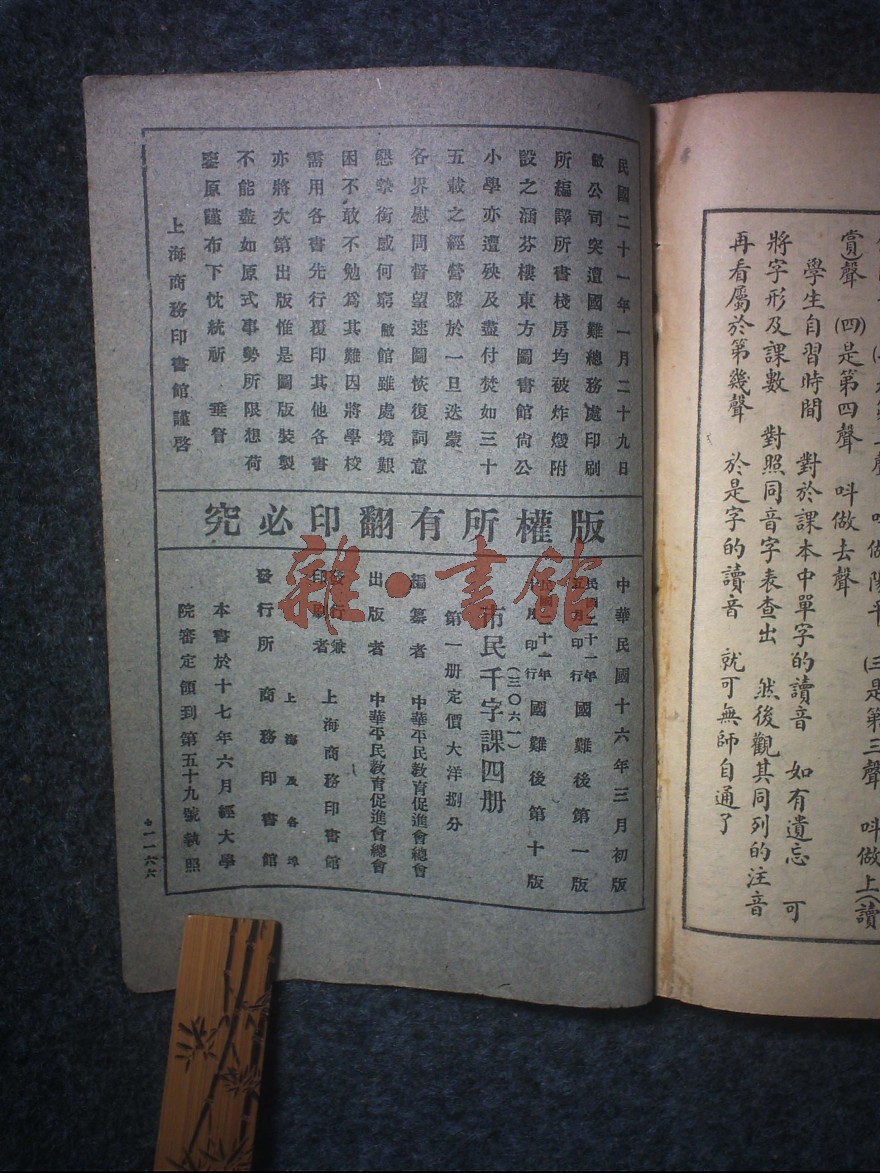 陽平 (三)是第三聲 呌做上(讀
賞)聲 (四)是第四聲 呌做去聲
學生自習時間 對於課本中單字的讀音 如有遺忘 可
將字形及課數 對照同音字表查出 然後觀其同列的注音
再看屬於第幾聲 於是字的讀音 就可無師自通了
民國二十一年一月二十九日
敝公司突遭國難總務處印刷
所編譯所書棧房均被炸燬附
設之涵芬樓東方圖書館尙公
小學亦遭殃及盡付焚如三十
五載之經營隳於一旦迭蒙
各界慰問督望速圖恢復詞意
懇摯銜感何窮敝館雖處境艱
困不敢不勉爲其難因將學校
需用各書先行覆印其他各書
亦將次第出版惟是圖版裝製
不能盡如原式事勢所限想荷
鑒原謹布下忱統祈 垂詧
上海商務印書館謹啓
版權所有翻印必究
中華民國十六年三月初版
民國二十一年五月印行 國難後第一版
民國二十一年十月印行 國難後第十版
(三〇六一)
市民千字課四册
第一册定價大洋捌分
編纂者 中華平民教育促進會總會
出版者 中華平民教育促進會總會
發行兼印刷者 上海商務印書館
發行所 上海及各埠 商務印書館
本書於十七年六月經大學
院審定領到第五十九號執照
一一六六
雜·書館